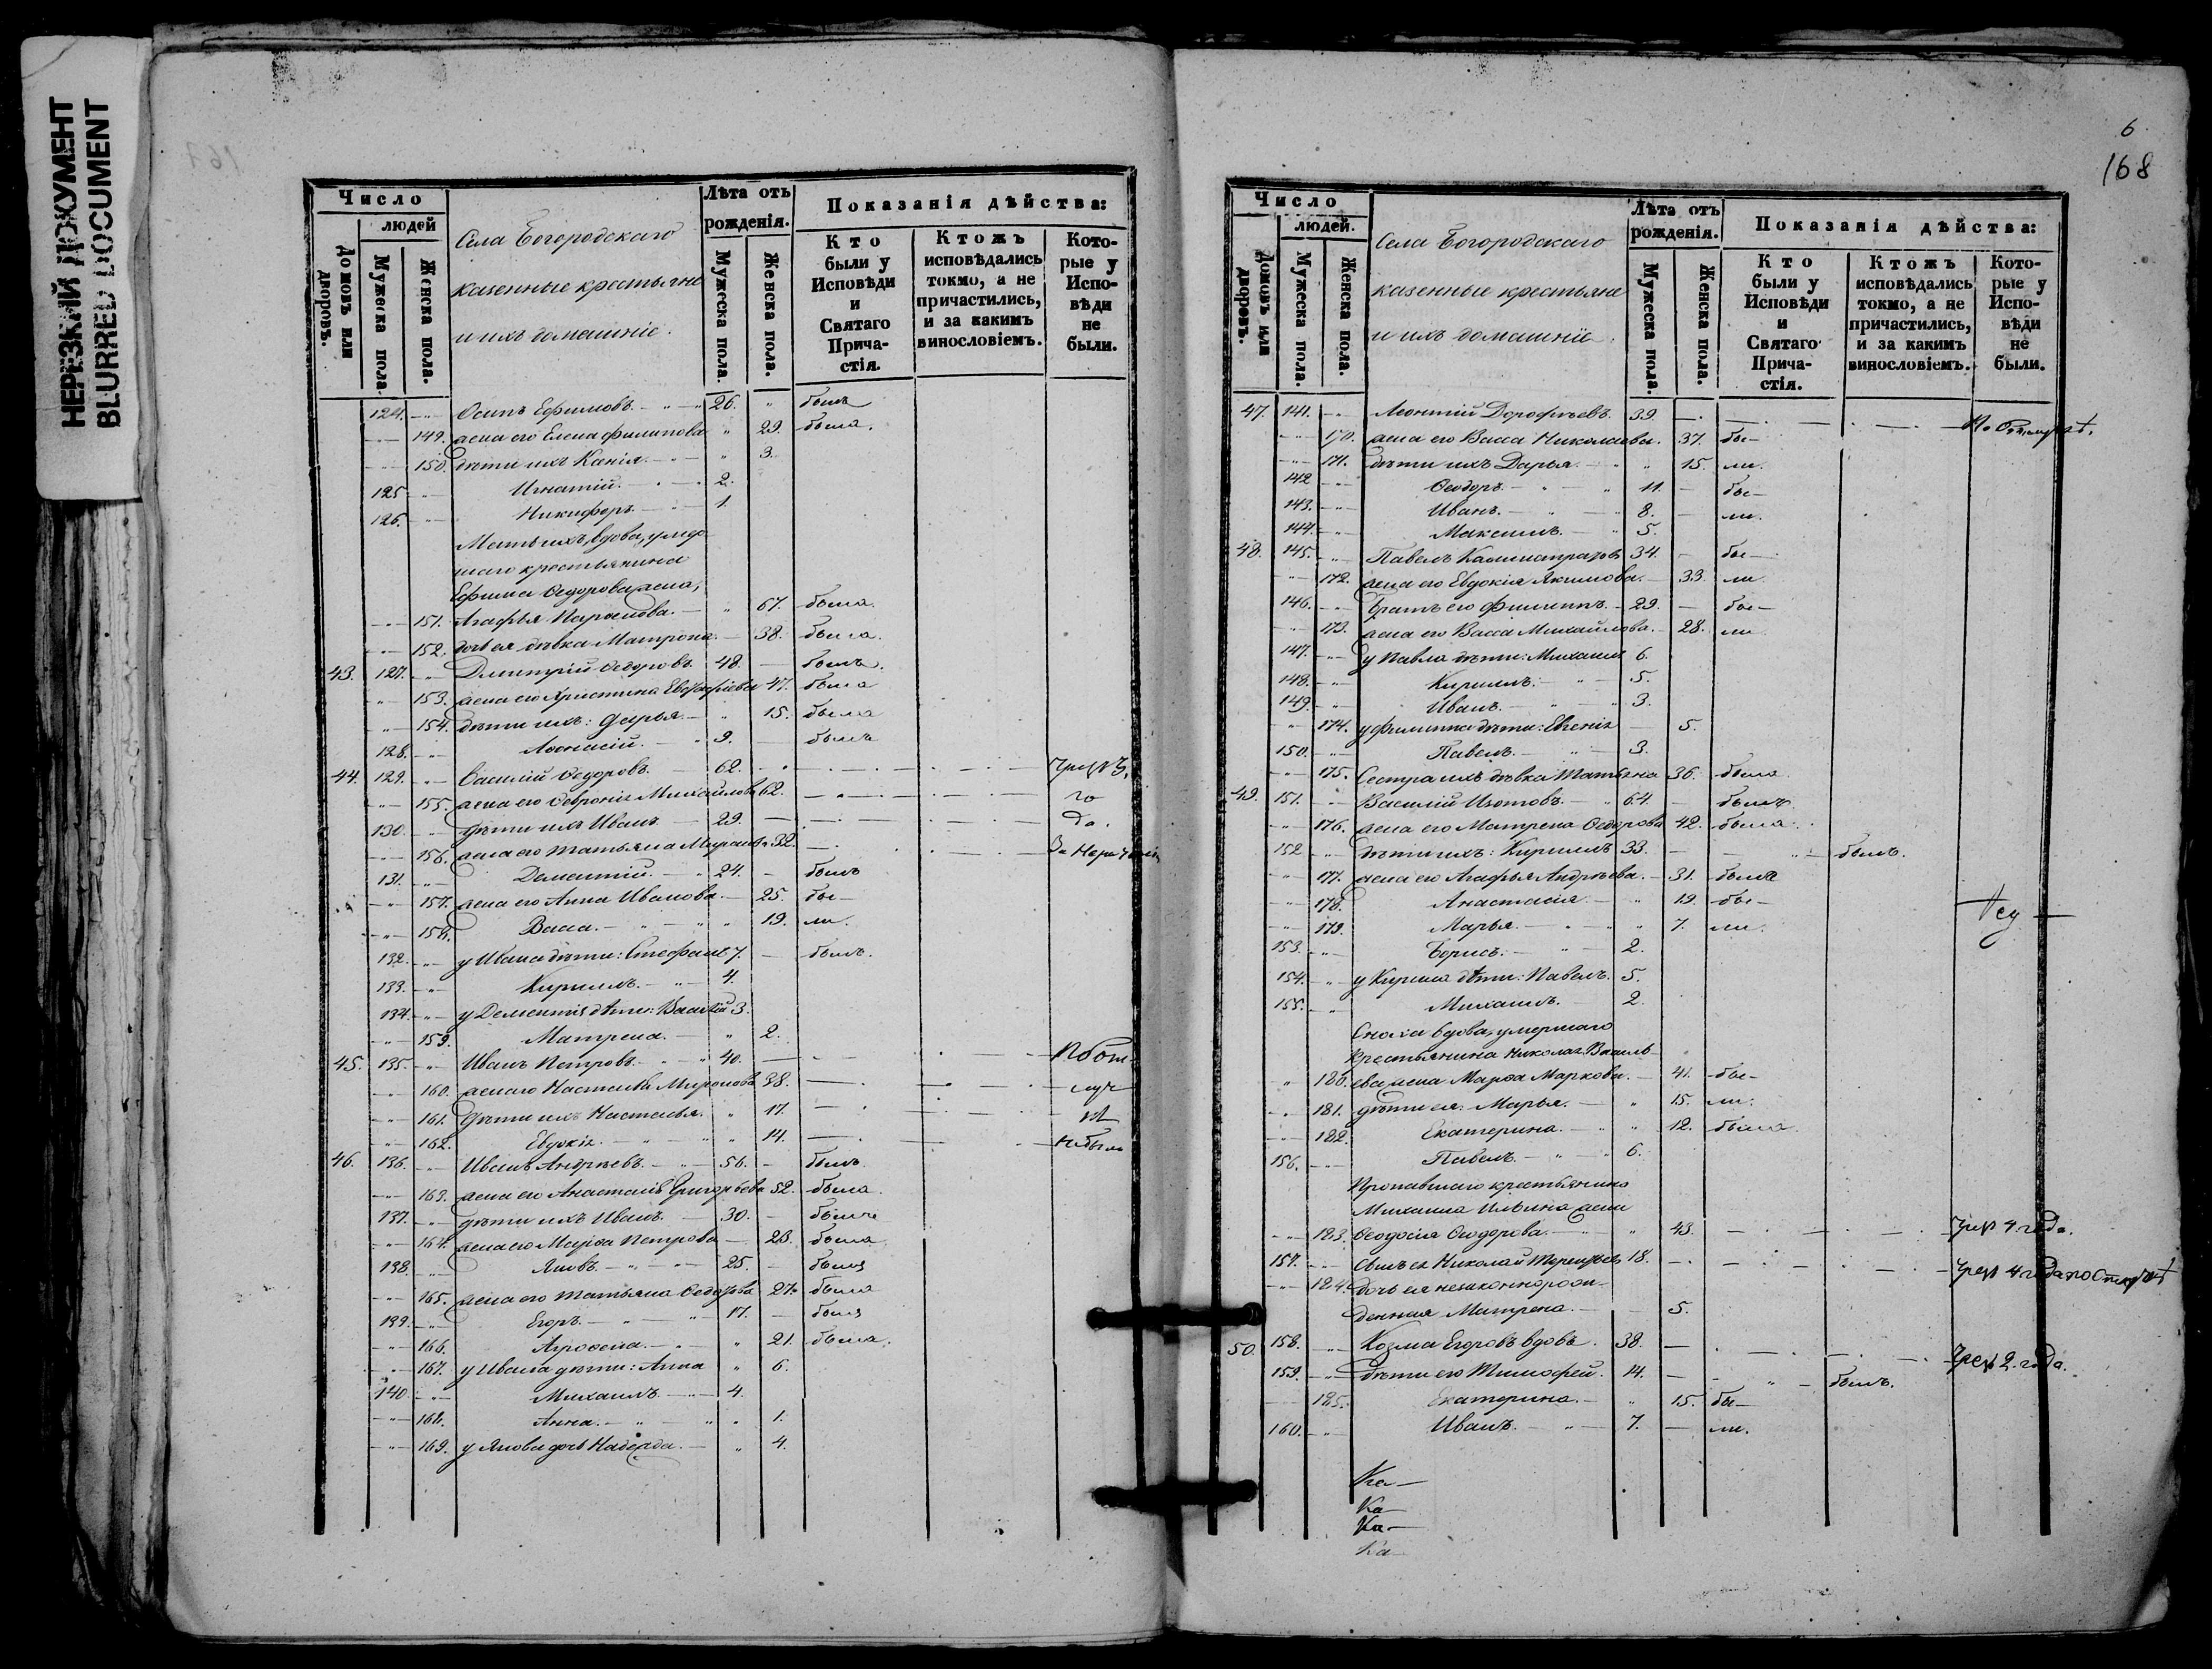 НЕРЕЗКИЙ ДОКУМЕНТ
BLURRED DOCUMENT
Число
людей
Домовъ или дворовъ.
Мужеска пола
Женска пола.
Села Богородскаго
казенные крестьяне
и ихъ домашніе.
Лѣта отъ рожденія.
Мужеска пола.
Женска пола.
Показанія дѣйства:
Кто были у Исповѣди и Святаго Прича-стія.
Ктожъ исповѣдались токмо, а не причастились, и за какимъ винословіемъ.
Кото-рые у Испо-вѣди не были.
124. Осипъ Ефимовъ. 26. былъ
149. жена его Елена Филипова 29. была.
150. дѣти ихъ Ксенія. 3.
125 Игнатій. 2.
126. Никифоръ 1.
Мать ихъ, вдова, умер-
шаго крестьянина
Ефима Ѳедорова жена,
151. Агафья 67. была.
152. дочь ея дѣвка Матрона 38. была.
43. 127. Димитрій Ѳедоровъ 48. былъ.
153. жена его Христина 47. была
154. дѣти ихъ: Дарья 15. была
128. Аѳанасій. 9. былъ
44. 129. Василій Ѳедоровъ. 62.
155. жена его Ѳевронія Михайлова 62. го
130. дѣти ихъ Иванъ 29. да.
156. жена его Татьяна 32.
131. Дементій. 24. былъ
157. жена его Анна Иванова. 25. бы-
158. Васса. 19. ли.
132. у Ивана дѣти: Стефанъ 7. былъ.
133. Кириллъ. 4.
134. у Дементія дѣти: Василій 3.
159. Матрена. 2.
45. 135. Иванъ Петровъ. 40.
160. жена его Настасья Миронова 38.
161. дѣти ихъ Настасья. 17.
162. Евдокія. 14.
46. 136. Иванъ Андреевъ. 56. былъ.
163. жена его Анастасія Григорьева 52. была.
137. дѣти ихъ Иванъ. 30. былъ
164. жена его Марѳа Петрова 28. была
138. Яковъ. 25. былъ
165. жена его Татьяна Ѳедорова 27. была
139. Егоръ. 17. былъ
166. Агрофена. 21. была.
167. у Ивана дѣти: Анна 6.
140. Михаилъ 4.
168. Анна. 1.
169. у Якова дочь Надежда. 4.
6
168
Число
людей.
Домовъ или дворовъ.
Мужеска пола.
Женска пола.
Села Богородскаго
казенные крестьяне
и ихъ домашніе.
Лѣта отъ рожденія.
Мужеска пола.
Женска пола.
Показанія дѣйства:
Кто были у Исповѣди и Святаго Прича-стія.
Ктожъ исповѣдались токмо, а не причастились, и за какимъ винословіемъ.
Кото-рые у Испо-вѣди не были.
47. 141. Леонтій Дорофѣевъ. 39.
170. жена его Васса Николаева. 37. бы-
171. дѣти ихъ Дарья 15. ли.
142 Ѳеодоръ. 11. бы-
143. Иванъ. 8. ли.
144. Максимъ. 5.
48. 145. Павелъ 34. бы-
172. жена его Евдокія Якимова. 33. ли.
146. Братъ его Филиппъ. 29. бы-
173. жена его Васса Михайлова. 28. ли.
147. у Павла дѣти: Михаилъ 6.
148. Кириллъ: 5.
149. Иванъ. 3.
174. у Филиппа дѣти: Евгенія 5.
150. Павелъ. 3.
175. Сестра ихъ дѣвка Татьяна 36. была
49. 151. Василій Изотовъ. 64. былъ
176. жена его Матрена Ѳедорова 42. была.
152 дѣти ихъ: Кириллъ 33. былъ.
177. жена его Агафья Андреева. 31. была
178. Анастасія. 19. бы-
179. Марья. 7. ли.
153. Борисъ: 2.
154. у Кирила дѣти: Павелъ. 5.
155. Михаилъ. 2.
Сноха вдова, умершаго
крестьянина Николая Василь-
180. ева жена Марѳа Маркова. 41. бы-
181. дѣти ея: Марья. 15. ли.
182. Екатерина. 12. была
156. Павелъ. 6.
Пропавшаго крестьянина
Михаила Ильина жена
183. Ѳеодосія Ѳеодорова. 43. 4 года.
157. Сынъ ея Николай 18. 4 года по
184. дочь ея незаконнорож-
денная Матрена. 5.
50. 158. Козма Егоровъ вдовъ. 38. 2. года.
159. дѣти его Тимофей. 14. былъ.
185. Екатерина. 15. бы-
160. Иванъ. 7. ли.
Ка-
Ка-
Ка-
Ка-